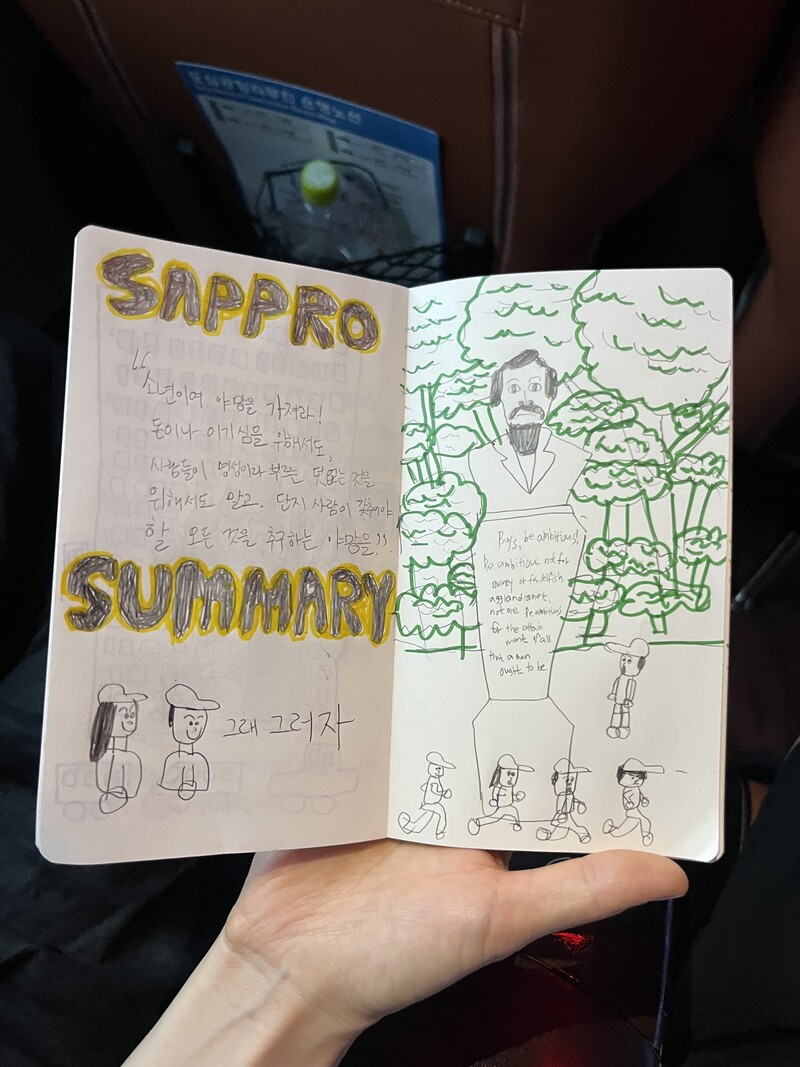 SAPPRO
“소년이여 야망을 가져라!
돈이나 이기심을 위해서도,
사람들이 명성이라 부르는 덧없는 것을
위해서도 말고. 단지 사람이 갖추어야
할 모든 것을 추구하는 야망을”
SUMMARY
그래 그러자
Boys, be ambitious!
Be ambitious not for
money or for selfish
agglandisment,
not me Be ambitious
for the attain
ment of all
that a man
ought to be